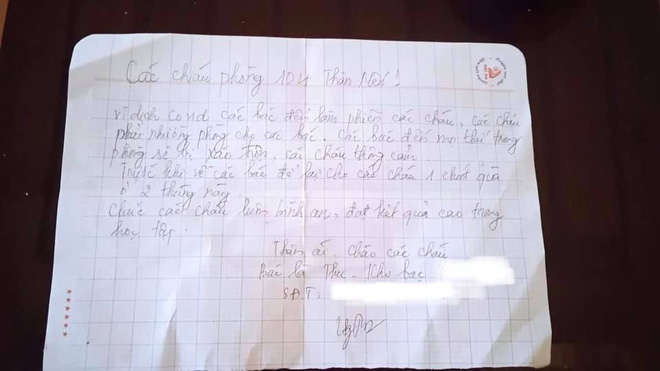 Các cháu phòng 104 Thân Mến!
Vì dịch covid các bác đến làm phiền các cháu. Các cháu
phải nhường phòng cho các bác. Các bác đến mọi thứ trong
phòng sẽ bị xáo trộn. Các cháu thông cảm
Trước khi về các bác để lại cho các cháu 1 chút quà
ở 2 thùng này.
Chúc các cháu luôn bình an, đạt kết quả cao trong
học tập.
Thân ái. Chào các cháu
Bác là Thu - Kho bạc
SĐT: